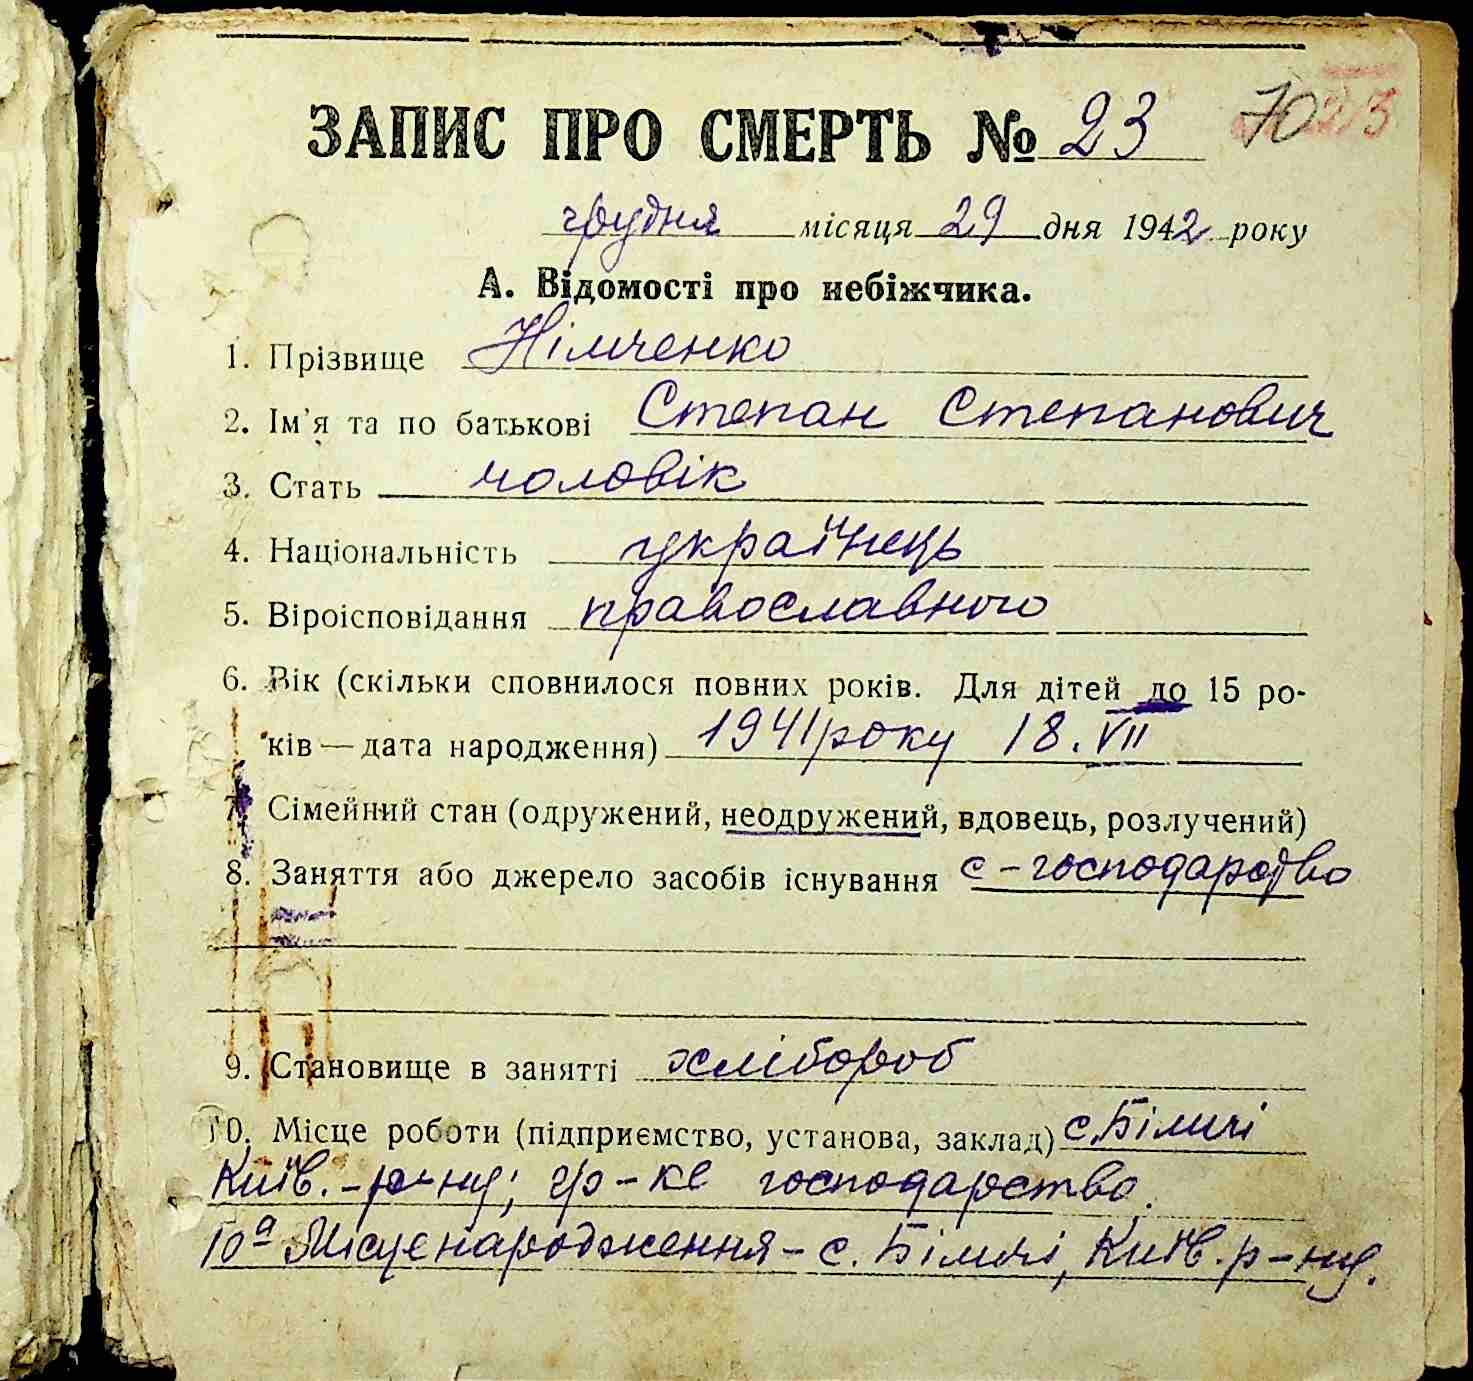 ЗАПИС ПРО СМЕРТЬ № 23 70
грудня місяця 29 дня 1942 року
А. Відомості про небіжчика.
1. Прізвище Німченко
2. Ім'я та по батькові Степан Степанович
3. Стать чоловік
4. Національність українець
5. Віроісповідання православного
6. Вік (скільки сповнилося повних років. Для дітей до 15 ро-
ків — дата народження) 1941 року 18. VII
7. Сімейний стан (одружений, неодружений, вдовець, розлучений)
8. Заняття або джерело засобів існування с-господарство
9. Становище в занятті хлібороб
10. Місце роботи (підприємство, установа, заклад) с. Біличі
Київ. - р-ну; гр-ке господарство.
10а Місце народження - с. Біличі, Київ. р-ну.